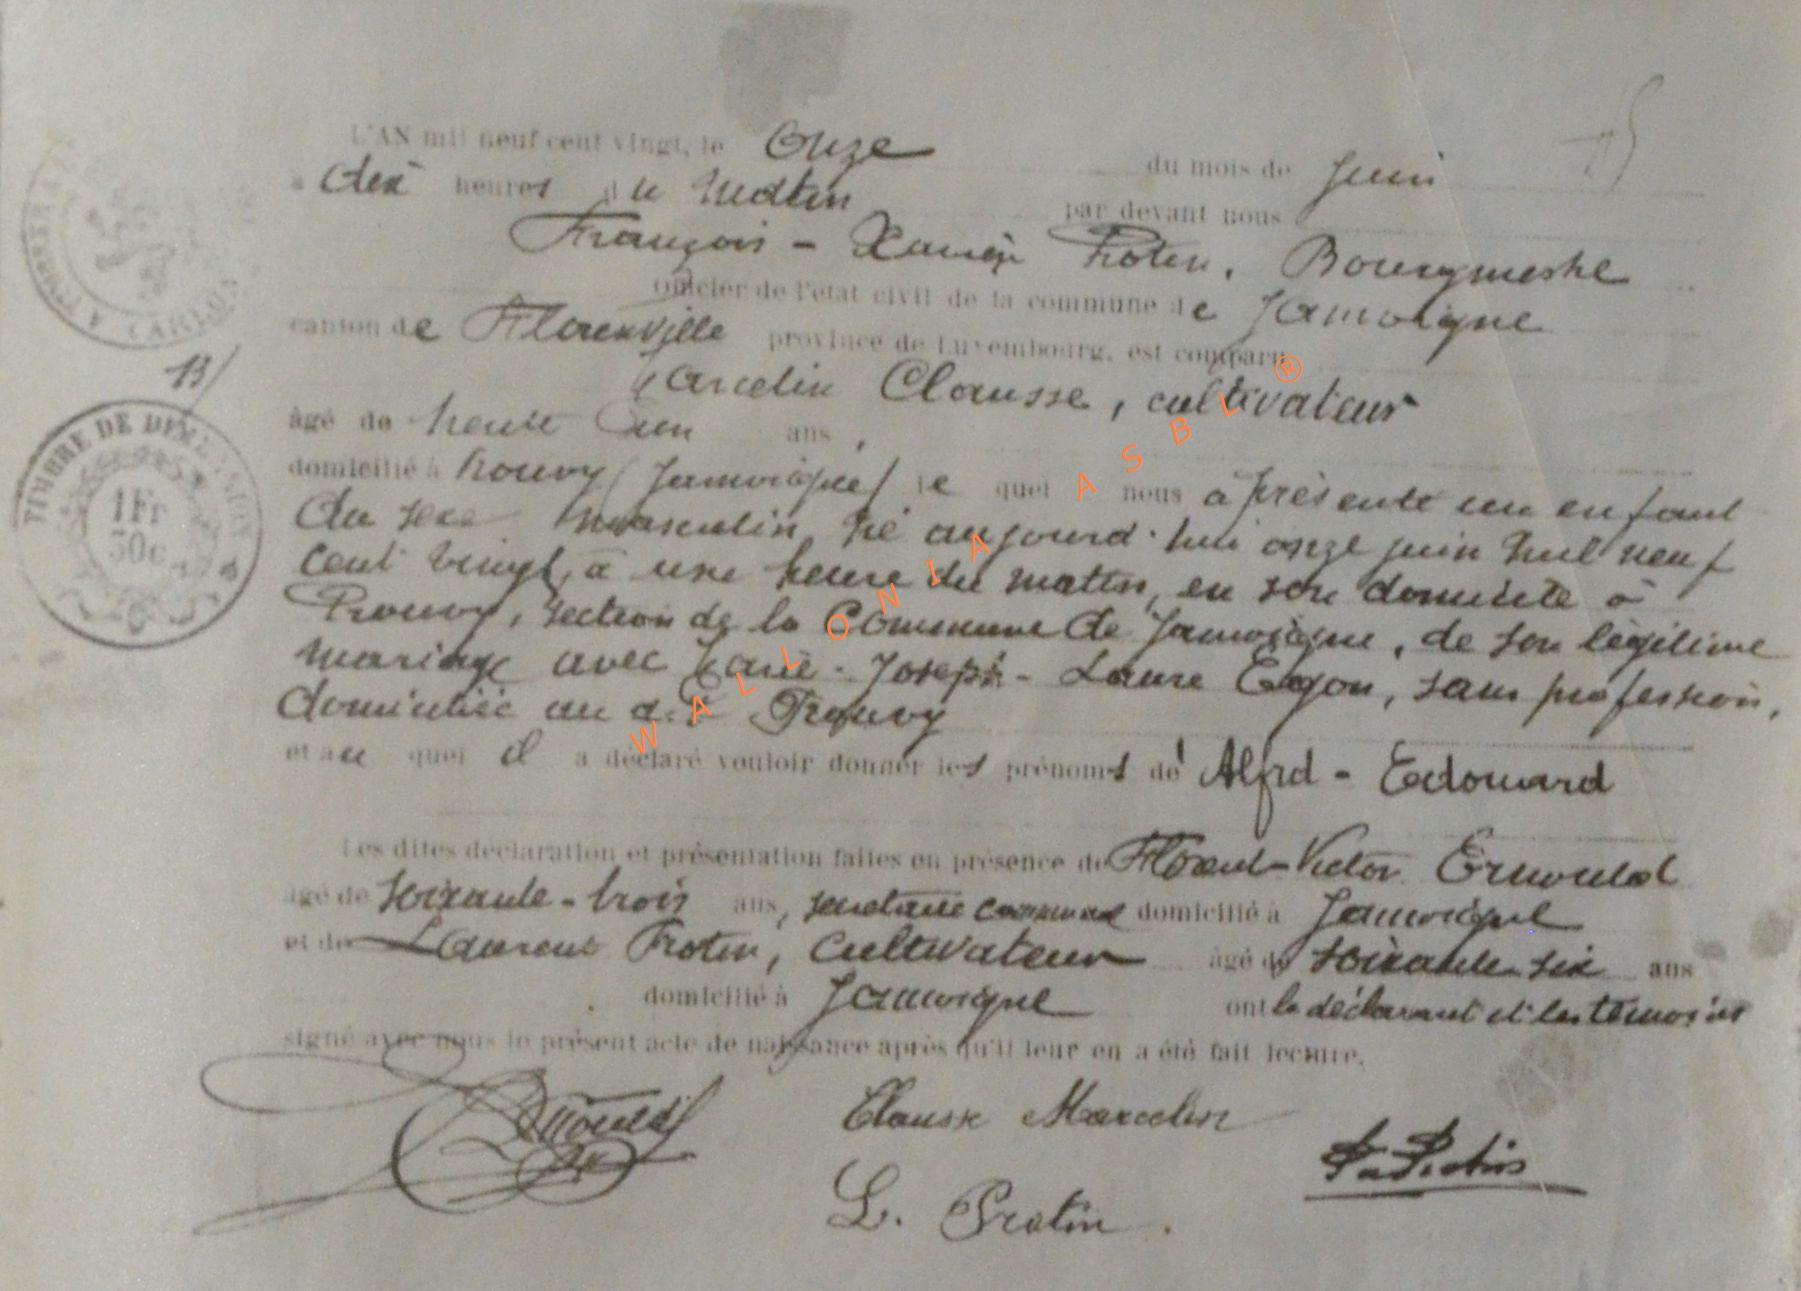 L'AN mil neuf cent vingt, le Onze du mois de Juin
à dix heures du Matin par devant nous
François - Xavier Protin, Bourgmestre
Officier de l'état civil de la commune de Jamoigne
canton de Florenville province de Luxembourg, est comparu
Marcelin Clausse, cultivateur
âgé de trente un ans,
domicilié à Prouvy (Jamoigne) le quel nous a présenté un enfant
du sexe masculin né aujourd'hui onze juin mil neuf
cent vingt, à une heure du matin, en son domicile à
Prouvy, section de la Commune de Jamoigne, de son légitime
mariage avec Marie - Joseph - Laure Egon, sans profession,
domiciliée au dit Prouvy
et au quel il a déclaré vouloir donner les prénoms de Alfrd - Edouard
Les dites déclaration et présentation faites en présence de Florent - Victor
âgé de soixante - trois ans, secrétaire communal domicilié à Jamoigne
et de Laurent Protin, cultivateur âgé de soixante six ans
domicilié à Jamoigne ont le déclarant et les témoins
signé avec nous le présent acte de naissance après qu'il leur en a été fait lecture.
Clausse Marcelin
L. Protin.
13/
TIMBRE DE DIMENSION
1Fr
50c
ARLON
WALLONIA ASBL®